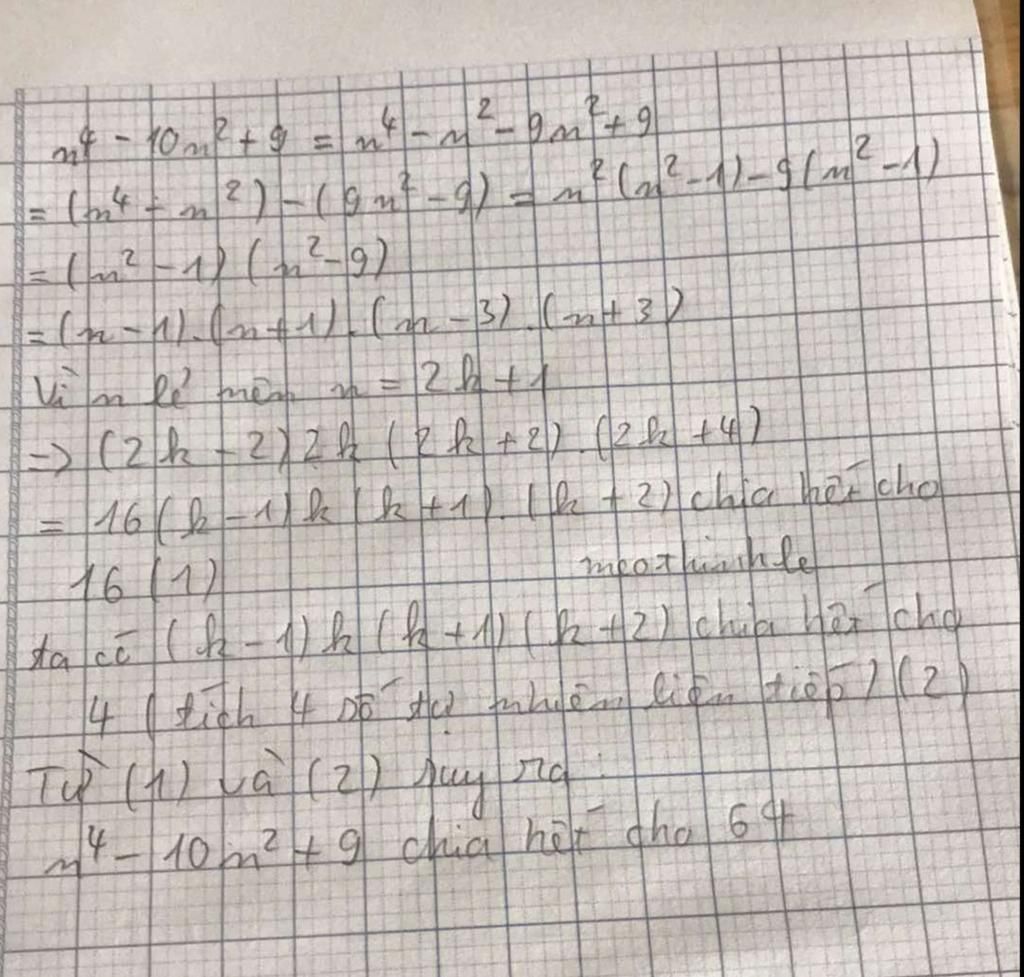 n⁴ - 10n² + 9 = n⁴ - n² - 9n² + 9
= (n⁴ - n²) - (9n² - 9) = n²(n² - 1) - 9(n² - 1)
= (n² - 1)(n² - 9)
= (n - 1).(n + 1).(n - 3).(n + 3)
Vì n lẻ nên n = 2k + 1
=> (2k - 2)2k(2k + 2).(2k + 4)
= 16(k - 1)k(k + 1).(k + 2) chia hết cho
16 (1) meothinhle
ta có (k - 1)k(k + 1)(k + 2) chia hết cho
4 (tích 4 số tự nhiên liên tiếp) (2)
Từ (1) và (2) suy ra:
n⁴ - 10n² + 9 chia hết cho 64